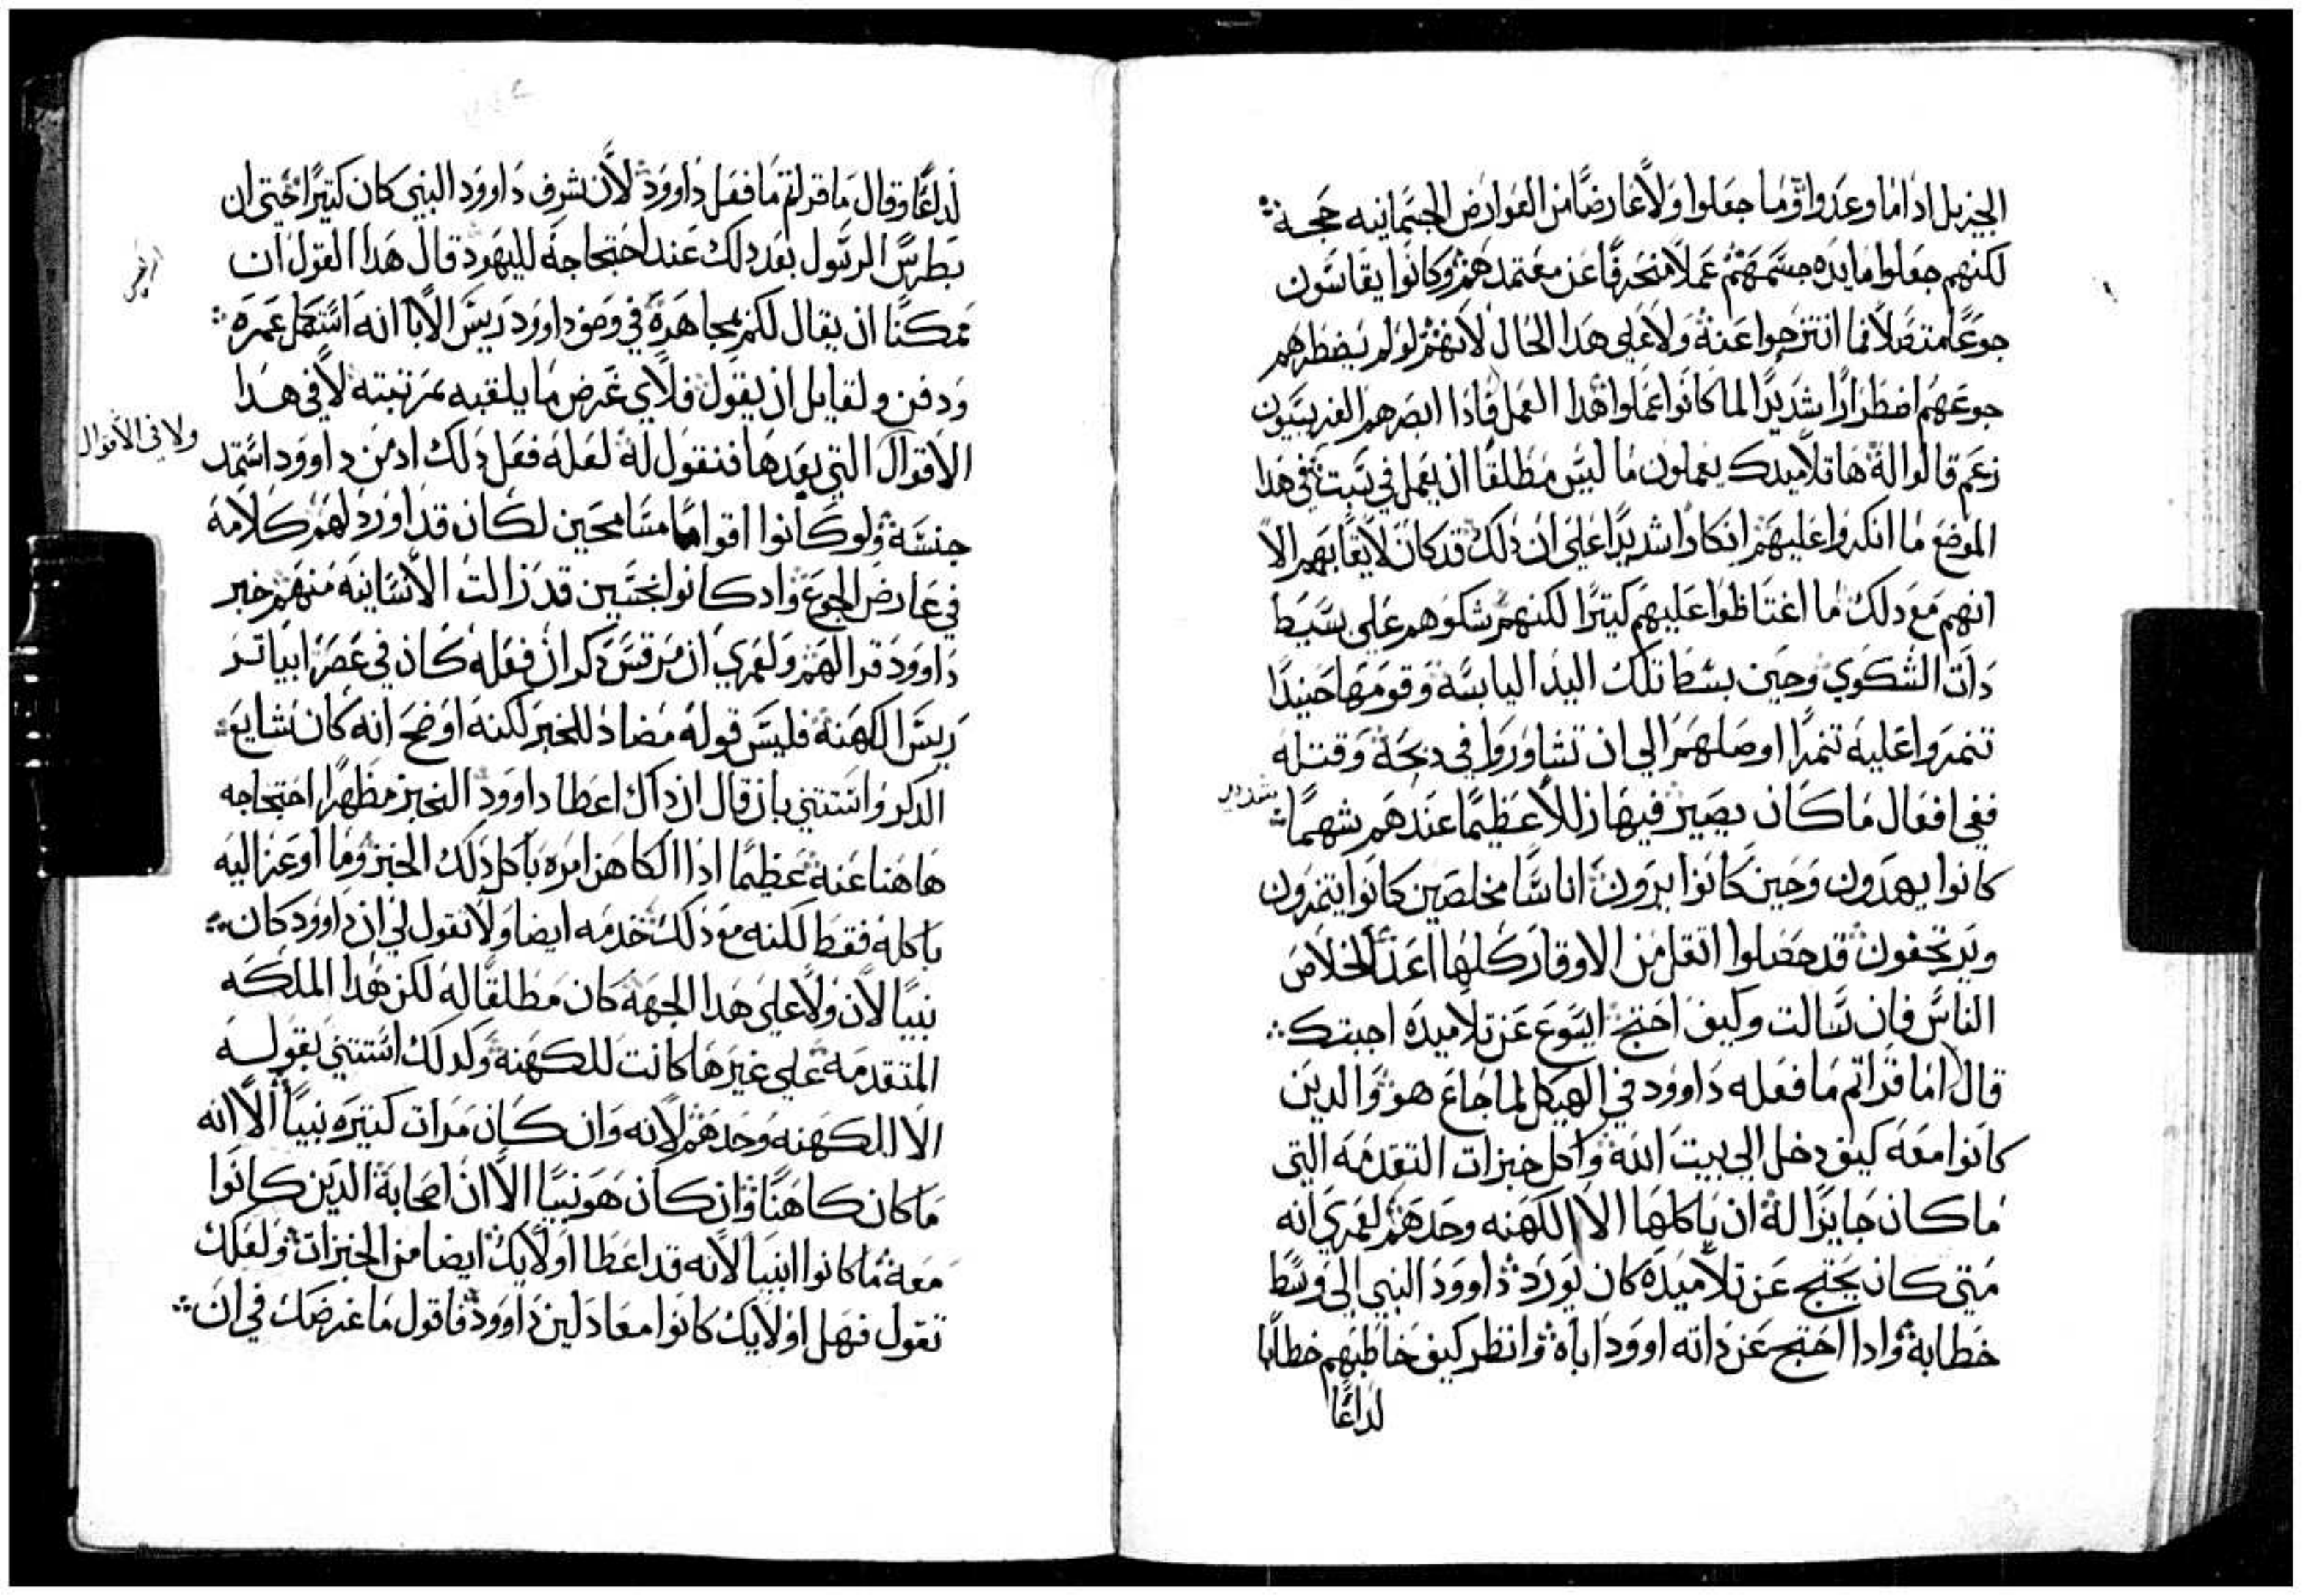 الجزيل اذا ما وعدوا وما جعلوا ولا عارضا من العوارض الجسمانيه حجة
لكنهم جعلوا مايده جسمهم عملا منحرفا عن معتمدهم وكانوا يقاسون
جوعا متصلا فما انتزحوا عنه ولا علي هدا الحال لانهم لو لم يضطرهم
جوعهم اضطرارا شديدا لما كانوا عملوا هدا العمل فادا ابصرهم الفريسيون
زعم قالوا له ها تلاميدك يعملون ما ليس مطلقا ان يعمل في سبت في هدا
الموضع ما انكروا عليهم انكارا شديدا علي ان دلك قد كان لايقا بهم الا
انهم مع دلك ما اغتاظوا عليهم كتيرا لكنهم شكوهم علي بسيط
دات الشكوي وحين بسط تلك اليد اليابسه وقومها حينيدا
تنمروا عليه تنمرا اوصلهم الي ان تشاوروا في دبحة وقتله
ففي افعال ما كان يصير فيها زللا عظيما عندهم شهما
شديد
كانوا يهدون وحين كانوا يرون اناسا مخلصين كانوا يتنمرون
ويرتجفون قد حصلوا اتقل من الاوقار كلها اعدا لخلاص
الناس فان سالت وكيف احتج ايسوع عن تلاميده اجبتك
قال اما قراتم ما فعله داوود في الهيكل لما جاع هو والدين
كانوا معه كيف دخل الي بيت الله واكل خبزات التقدمه التي
ما كان جايزا له ان ياكلها الا الكهنه وحدهم لعمري انه
متي كان يحتج عن تلاميده كان يورد داوود النبي الي وسط
خطابه وادا احتج عن داته اوود اباه وانظر كيف خاطبهم خطابا
لداعا
لداعا وقال ما قراتم ما فعل داوود لان شرف داوود النبي كان كتيرا حتي ان
بطرس الرسول بعد دلك عند احتجاجه لليهود قال هدا القول ان
ممكنا ان يقال لكم بمجاهرة في وصف داوود ريس الابا انه استكمل عمره
ودفن ولقايل ان يقول فلاي غرض ما يلقبه بمرتبته لا في هدا
ولا في الاقوال
الاقوال التي بعدها فنقول له لعله فعل دلك اد من داوود استمد
جنسه ولو كانوا اقواما مسامحين لكان قد اورد لهم كلامه
في عارض الجوع واد كانوا نجسين قد زالت الانسانيه منهم خبر
داوود قرا لهم ولعمري ان مرقس دكر ان فعله كان في عصر ابياتر
ريس الكهنة فليس قوله مضاد للخبر لكنه اوضح انه كان شايع
الدكر واستتني بان قال ان داك اعطا داوود الخبز مظهرا احتجاجه
هاهنا عنه عظيما ادا الكاهن امره باكل دلك الخبز وما اوعز اليه
باكله فقط لكنه مع دلك خدمه ايضا ولا تقول لي ان داوود كان
نبيا لان ولا علي هدا الجهة كان مطلقا له لكن هدا الملكه
المتقدمه علي غيرها كانت للكهنة ولدلك استتني بقوله
الا الكهنه وحدهم لانه وان كان مرات كتيره نبيا الا انه
ما كان كاهنا وان كان هو نبيا الا ان اصحابة الدين كانوا
معه ما كانوا انبيا لانه قد اعطا اولايك ايضا من الخبزات ولعلك
تقول فهل اولايك كانوا معادلين داوود فاقول ما غرضك في ان